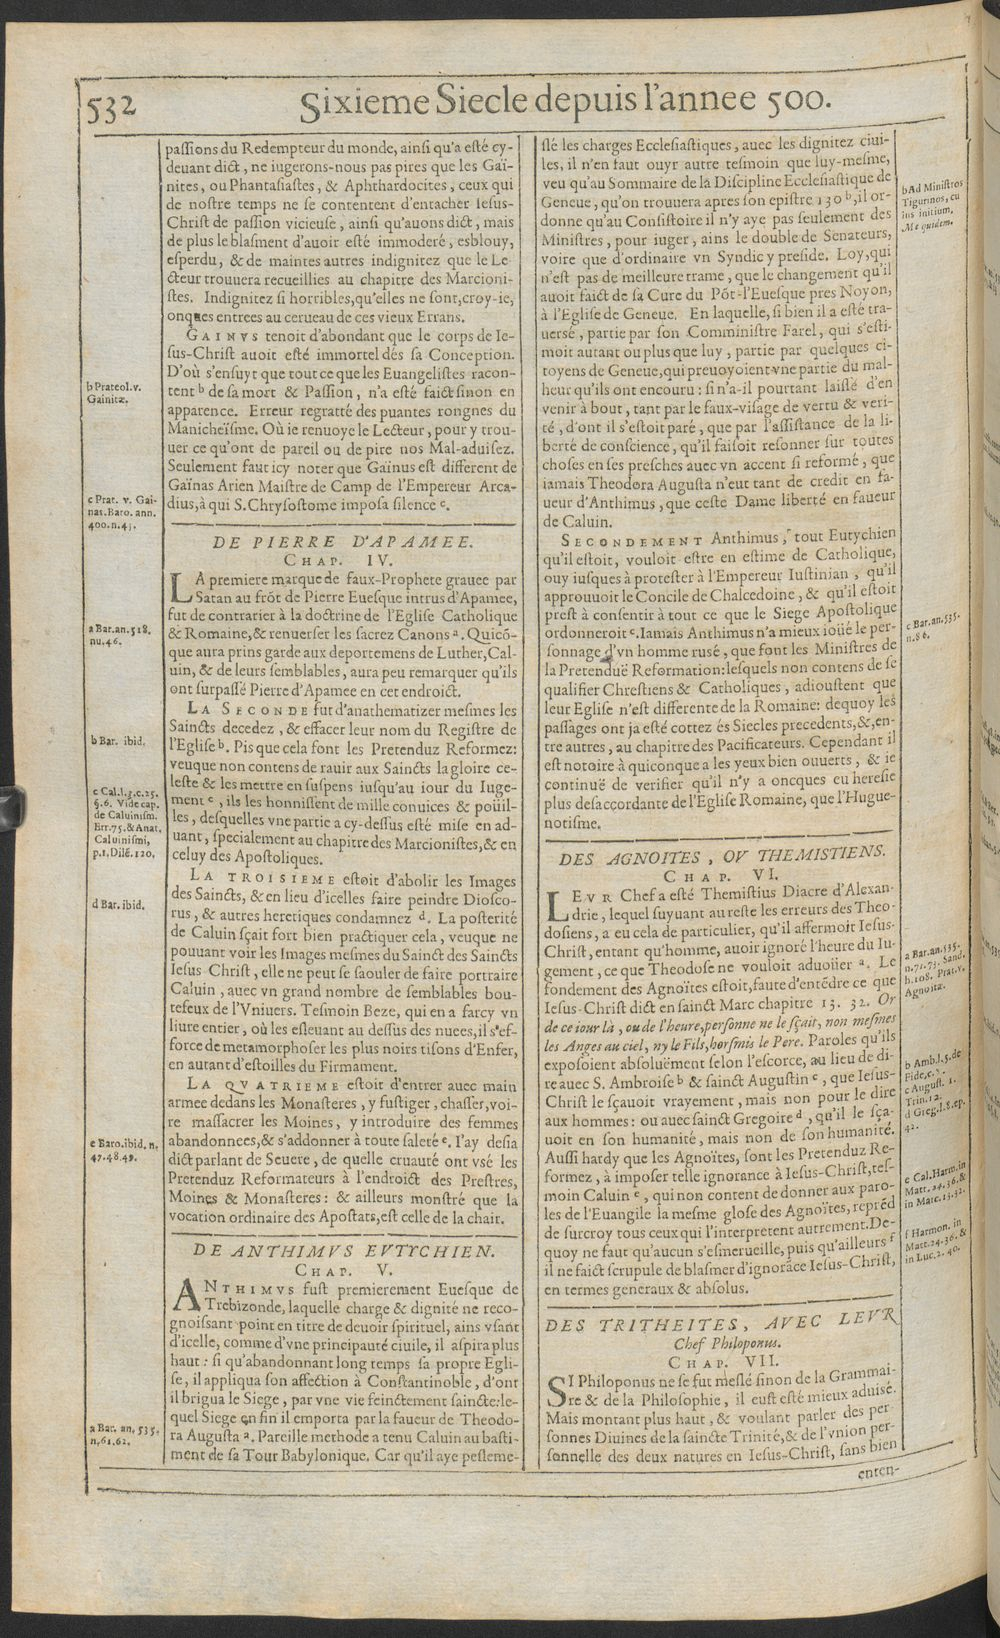 532
Sixieme Siecle depuis l'annee 500.
paſſions du Redempteur du monde, ainſi qu'a eſté cy-
deuant dict, ne iugerons-nous pas pires que les Gaï-
nites, ou Phantaſiaſtes, & Aphthardocites, ceux qui
de noſtre temps ne ſe contentent d'entacher Ieſus-
Chriſt de paſſion vicieuſe, ainſi qu'auons dict, mais
de plus le blaſment d'auoir eſté immoderé, esblouy,
eſperdu, & de maintes autres indignitez que le Le
cteur trouuera recueillies au chapitre des Marcioni-
ſtes. Indignitez ſi horribles, qu'elles ne ſont, croy-ie,
onques entrees au cerueau de ces vieux Errans.
GAINVS tenoit d'abondant que le corps de Ie-
ſus-Chriſt auoit eſté immortel dés ſa Conception.
D'où s'enſuyt que tout ce que les Euangeliſtes racon-
tent b de ſa mort & Paſſion, n'a eſté faict ſinon en
apparence. Erreur regratté des puantes rongnes du
Manicheïſme. Où ie renuoye le Lecteur, pour y trou-
uer ce qu'ont de pareil ou de pire nos Mal-aduiſez.
Seulement faut icy noter que Gaïnus eſt different de
Gaïnas Arien Maiſtre de Camp de l'Empereur Arca-
dius, à qui S. Chryſoſtome impoſa ſilence c.
b Prateol. v.
Gainitæ.
c Prat. v. Gai-
nas. Baro. ann.
400. n. 43.
DE PIERRE D'APAMEE.
CHAP. IV.
LA premiere marque de faux-Prophete grauee par
Satan au frõt de Pierre Eueſque intrus d'Apamee,
fut de contrarier à la doctrine de l'Egliſe Catholique
& Romaine, & renuerſer les ſacrez Canons a. Quicõ-
que aura prins garde aux deportemens de Luther, Cal-
uin, & de leurs ſemblables, aura peu remarquer qu'ils
ont ſurpaſſé Pierre d'Apamee en cet endroict.
LA SECONDE fut d'anathematizer meſmes les
Saincts decedez, & effacer leur nom du Regiſtre de
l'Egliſe b. Pis que cela font les Pretenduz Reformez:
veuque non contens de rauir aux Saincts la gloire ce-
leſte & les mettre en ſuspens iuſqu'au iour du Iuge-
ment c, ils les honniſſent de mille conuices & poüil-
les, deſquelles vne partie a cy-deſſus eſté miſe en ad-
uant, ſpecialement au chapitre des Marcioniſtes, & en
celuy des Apoſtoliques.
LA TROISIEME eſtoit d'abolir les Images
des Saincts, & en lieu d'icelles faire peindre Dioſco-
rus, & autres heretiques condamnez d. La poſterité
de Caluin ſçait fort bien practiquer cela, veuque ne
pouuant voir les Images meſmes du Sainct des Saincts
Ieſus Chriſt, elle ne peut ſe ſaouler de faire portraire
Caluin, auec vn grand nombre de ſemblables bou-
tefeux de l'Vniuers. Teſmoin Beze, qui en a farcy vn
liure entier, où les eſleuant au deſſus des nuees, il s'ef-
force de metamorphoſer les plus noirs tiſons d'Enfer,
en autant d'eſtoilles du Firmament.
LA QVATRIEME eſtoit d'entrer auec main
armee dedans les Monaſteres, y fuſtiger, chaſſer, voi-
re maſſacrer les Moines, y introduire des femmes
abandonnees, & s'addonner à toute ſaleté e. I'ay deſia
dict parlant de Seuere, de quelle cruauté ont vſé les
Pretenduz Reformateurs à l'endroict des Preſtres,
Moines & Monaſteres: & ailleurs monſtré que la
vocation ordinaire des Apoſtats, eſt celle de la chair.
a Bar. an. 518.
nu. 46.
b Bar. ibid.
c Cal. l. 3. c. 25.
§. 6. Vide cap.
de Caluiniſm.
Err. 75. & Anat.
Caluiniſmi,
p. 1. Dilê. 120.
d Bar. ibid.
e Baro. ibid. n.
47. 48. 49.
DE ANTHIMVS EVTYCHIEN.
CHAP. V.
ANTHIMVS fuſt premierement Eueſque de
Trebizonde, laquelle charge & dignité ne reco-
gnoiſſant point en titre de deuoir ſpirituel, ains vſant
d'icelle, comme d'vne principauté ciuile, il aſpira plus
haut: ſi qu'abandonnant long temps ſa propre Egli-
ſe, il appliqua ſon affection à Conſtantinoble, d'ont
il brigua le Siege, par vne vie feinctement ſaincte: le-
quel Siege en fin il emporta par la faueur de Theodo-
ra Auguſta a. Pareille methode a tenu Caluin au baſti-
ment de ſa Tour Babylonique. Car qu'il aye peſleme-
a Bar. an. 535.
n. 61. 62.
ſlé les charges Eccleſiaſtiques, auec les dignitez ciui-
les, il n'en faut ouyr autre teſmoin que luy-meſme,
veu qu'au Sommaire de la Diſcipline Eccleſiaſtique de
Geneue, qu'on trouuera apres ſon epiſtre 130 b, il or-
donne qu'au Conſiſtoire il n'y aye pas ſeulement des
Miniſtres, pour iuger, ains le double de Senateurs,
voire que d'ordinaire vn Syndic y preſide. Loy, qui
n'eſt pas de meilleure trame, que le changement qu'il
auoit faict de ſa Cure du Põt-l'Eueſque pres Noyon,
à l'Egliſe de Geneue. En laquelle, ſi bien il a eſté tra-
uersé, partie par ſon Comminiſtre Farel, qui s'eſti-
moit autant ou plus que luy, partie par quelques ci-
toyens de Geneue, qui preuoyoient vne partie du mal-
heur qu'ils ont encouru: ſi n'a-il pourtant laiſſé d'en
venir à bout, tant par le faux-viſage de vertu & veri-
té, d'ont il s'eſtoit paré, que par l'aſſiſtance de la li-
berté de conſcience, qu'il faiſoit reſonner ſur toutes
choſes en ſes preſches auec vn accent ſi reformé, que
iamais Theodora Auguſta n'eut tant de credit en fa-
ueur d'Anthimus, que ceſte Dame liberté en faueur
de Caluin.
SECONDEMENT Anthimus, tout Eutychien
qu'il eſtoit, vouloit eſtre en eſtime de Catholique,
ouy iuſques à proteſter à l'Empereur Iuſtinian, qu'il
approuuoit le Concile de Chalcedoine, & qu'il eſtoit
preſt à conſentir à tout ce que le Siege Apoſtolique
ordonneroit c. Iamais Anthimus n'a mieux ioüé le per-
ſonnage d'vn homme rusé, que font les Miniſtres de
la Pretenduë Reformation: leſquels non contens de ſe
qualifier Chreſtiens & Catholiques, adiouſtent que
leur Egliſe n'eſt differente de la Romaine: dequoy les
paſſages ont ja eſté cottez és Siecles precedents, &, en-
tre autres, au chapitre des Pacificateurs. Cependant il
eſt notoire à quiconque a les yeux bien ouuerts, & ie
continuë de verifier qu'il n'y a oncques eu hereſie
plus deſaccordante de l'Egliſe Romaine, que l'Hugue-
notiſme.
b Ad Miniſtros
Tigurinos, cu
ius initium,
Me quidem.
c Bar. an. 535.
n. 86.
DES AGNOITES, OV THEMISTIENS.
CHAP. VI.
LEVR Chef a eſté Themiſtius Diacre d'Alexan-
drie, lequel ſuyuant au reſte les erreurs des Theo-
doſiens, a eu cela de particulier, qu'il affermoit Ieſus-
Chriſt, entant qu'homme, auoir ignoré l'heure du Iu-
gement, ce que Theodoſe ne vouloit aduoüer a. Le
fondement des Agnoïtes eſtoit, faute d'entẽdre ce que
Ieſus-Chriſt dict en ſainct Marc chapitre 13. 32. Or
de ce iour là, ou de l'heure, perſonne ne le ſçait, non meſmes
les Anges au ciel, ny le Fils, horſmis le Pere. Paroles qu'ils
expoſoient abſoluëment ſelon l'eſcorce, au lieu de di-
re auec S. Ambroiſe b & ſainct Auguſtin c, que Ieſus-
Chriſt le ſçauoit vrayement, mais non pour le dire
aux hommes: ou auec ſainct Gregoire d, qu'il le ſça-
uoit en ſon humanité, mais non de ſon humanité.
Auſſi hardy que les Agnoïtes, ſont les Pretenduz Re-
formez, à impoſer telle ignorance à Ieſus-Chriſt, teſ-
moin Caluin e, qui non content de donner aux paro-
les de l'Euangile la meſme gloſe des Agnoïtes, reprẽd
de ſurcroy tous ceux qui l'interpretent autrement. De-
quoy ne faut qu'aucun s'eſmerueille, puis qu'ailleurs f
il ne faict ſcrupule de blaſmer d'ignorãce Ieſus-Chriſt,
en termes generaux & abſolus.
a Bar. an. 535.
n. 71. 73. Sand.
h. 108. Prat. v.
Agnoitæ.
b Amb. l. 5. de
Fide, c.
c Auguſt. 1.
Trin. 12.
d Greg. l. 8. ep.
42.
e Cal. Harm. in
Matt. 24. 36. &
in Marc. 13. 32.
f Harmon. in
Matt. 24. 36. &
in Luc. 2. 40.
DES TRITHEITES, AVEC LEVR
Chef Philoponus.
CHAP. VII.
SI Philoponus ne ſe fut meſlé ſinon de la Grammai-
re & de la Philoſophie, il euſt eſté mieux aduisé.
Mais montant plus haut, & voulant parler des per-
ſonnes Diuines de la ſaincte Trinité, & de l'vnion per-
ſonnelle des deux natures en Ieſus-Chriſt, ſans bien
enten-